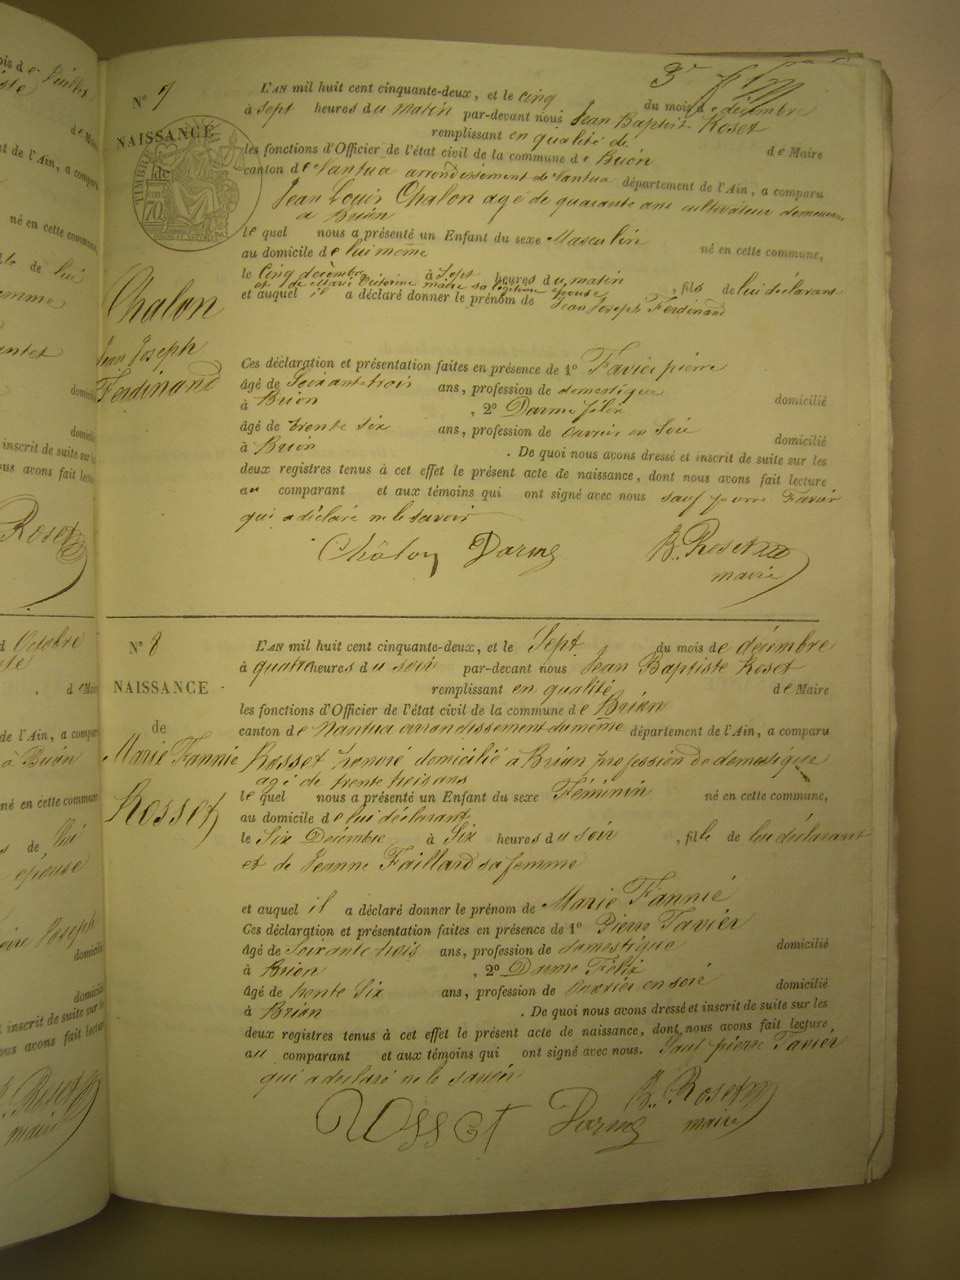 3e f
N° 7
L'AN mil huit cent cinquante-deux, et le cinq du mois de décembre
à sept heures du matin par-devant nous Jean Baptist Roset
remplissant en qualité de de Maire
NAISSANCE
les fonctions d'Officier de l'état civil de la commune de Brion
canton de Nantua arrondissement de Nantua département de l'Ain, a comparu
Jean Louis Chalon agé de quarante ans cultivateur demeurant
a Brion
le quel nous a présenté un Enfant du sexe Masculin né en cette commune,
au domicile de lui même
le cinq décembre à sept heures du matin , fils de lui déclarant
et de Marie Victorine sa légitime épouse
et auquel il a déclaré donner le prénom de Jean Joseph Ferdinand
Chalon
Jean Joseph
Ferdinand
Ces déclaration et présentation faites en présence de 1° Favier pierre
âgé de Soixante trois ans, profession de domestique
à Brion domicilié
, 2° Darme félix
âgé de trente six ans, profession de ouvrier en soie
à Brion domicilié
. De quoi nous avons dressé et inscrit de suite sur les
deux registres tenus à cet effet le présent acte de naissance, dont nous avons fait lecture
au comparant et aux témoins qui ont signé avec nous sauf pierre Favier
qui a déclaré ne le savoir
Châlon Darme B. Roset
maire
N° 8
L'AN mil huit cent cinquante-deux, et le Sept du mois de décembre
à quatre heures du soir par-devant nous Jean Baptiste Roset
NAISSANCE
remplissant en qualité de Maire
les fonctions d'Officier de l'état civil de la commune de Brion
de
canton de Nantua arrondissement du même département de l'Ain, a comparu
Marie Fannie
Rosset honoré domicilié à Brion profession de domestique
agé de trente trois ans
Rosset
le quel nous a présenté un Enfant du sexe Féminin né en cette commune,
au domicile de lui déclarant
le Six Décembre à Six heures du soir , fille de lui déclarant
et de Jeanne Faillard sa femme
et auquel il a déclaré donner le prénom de Marie Fannie
Ces déclaration et présentation faites en présence de 1° Pierre Favier
âgé de Soixante trois ans, profession de domestique domicilié
à Brion , 2° Darme Félix
âgé de trente Six ans, profession de ouvrier en soie domicilié
à Brion . De quoi nous avons dressé et inscrit de suite sur les
deux registres tenus à cet effet le présent acte de naissance, dont nous avons fait lecture
au comparant et aux témoins qui ont signé avec nous. Sauf pierre Favier
qui a déclaré ne le savoir
Rosset Darme B. Roset
maire